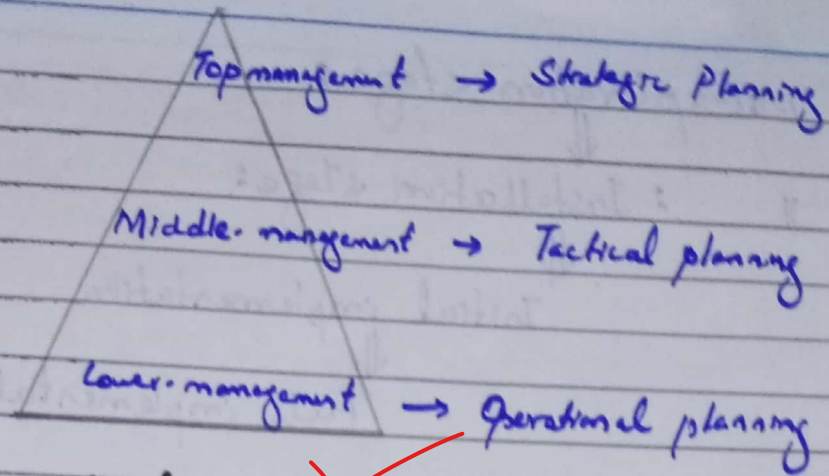 Top management → Strategic Planning
Middle. management → Tactical planning
Lower. management → Operational planning